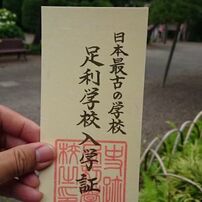 日本最古の学校
足利学校入学証
史跡